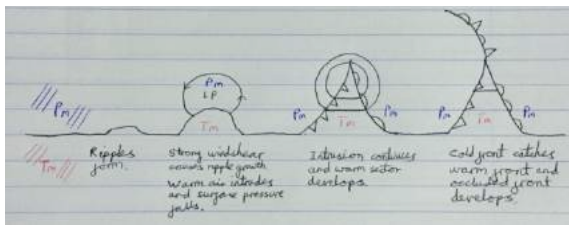 Pm
LP
Pm
Tm
Pm
Tm
Pm
Tm
Pm
Tm
Pm
Ripples
form.
Strong windshear
causes ripple growth
Warm air intrudes
and surface pressure
falls.
Intrusion continues
and warm sector
develops.
Cold front catches
warm front and
occluded front
develops.